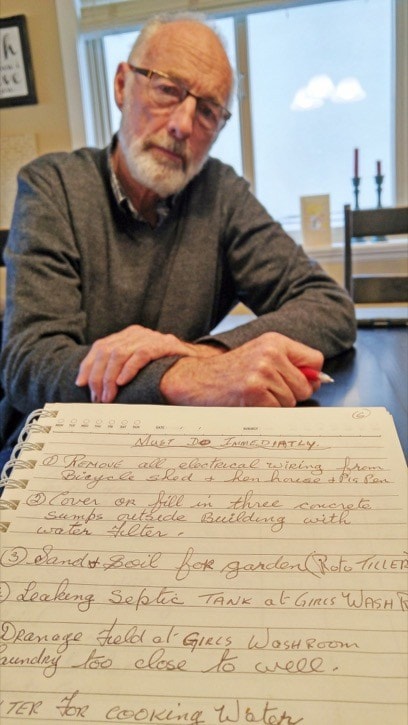 6
MUST DO IMMEDIATLY.
① REMOVE all electrical wiring from
Bicycle shed + hen house + Pig Pen
② Cover or fill in three concrete
sumps outside Building with
water filter.
③ Sand & Soil for garden (ROTO TILLER
Leaking Septic TANK at GIRLS WASH R
Dranage field at GIRLS WASHROOM
aundry too close to well.
TER FOR COOKING Water